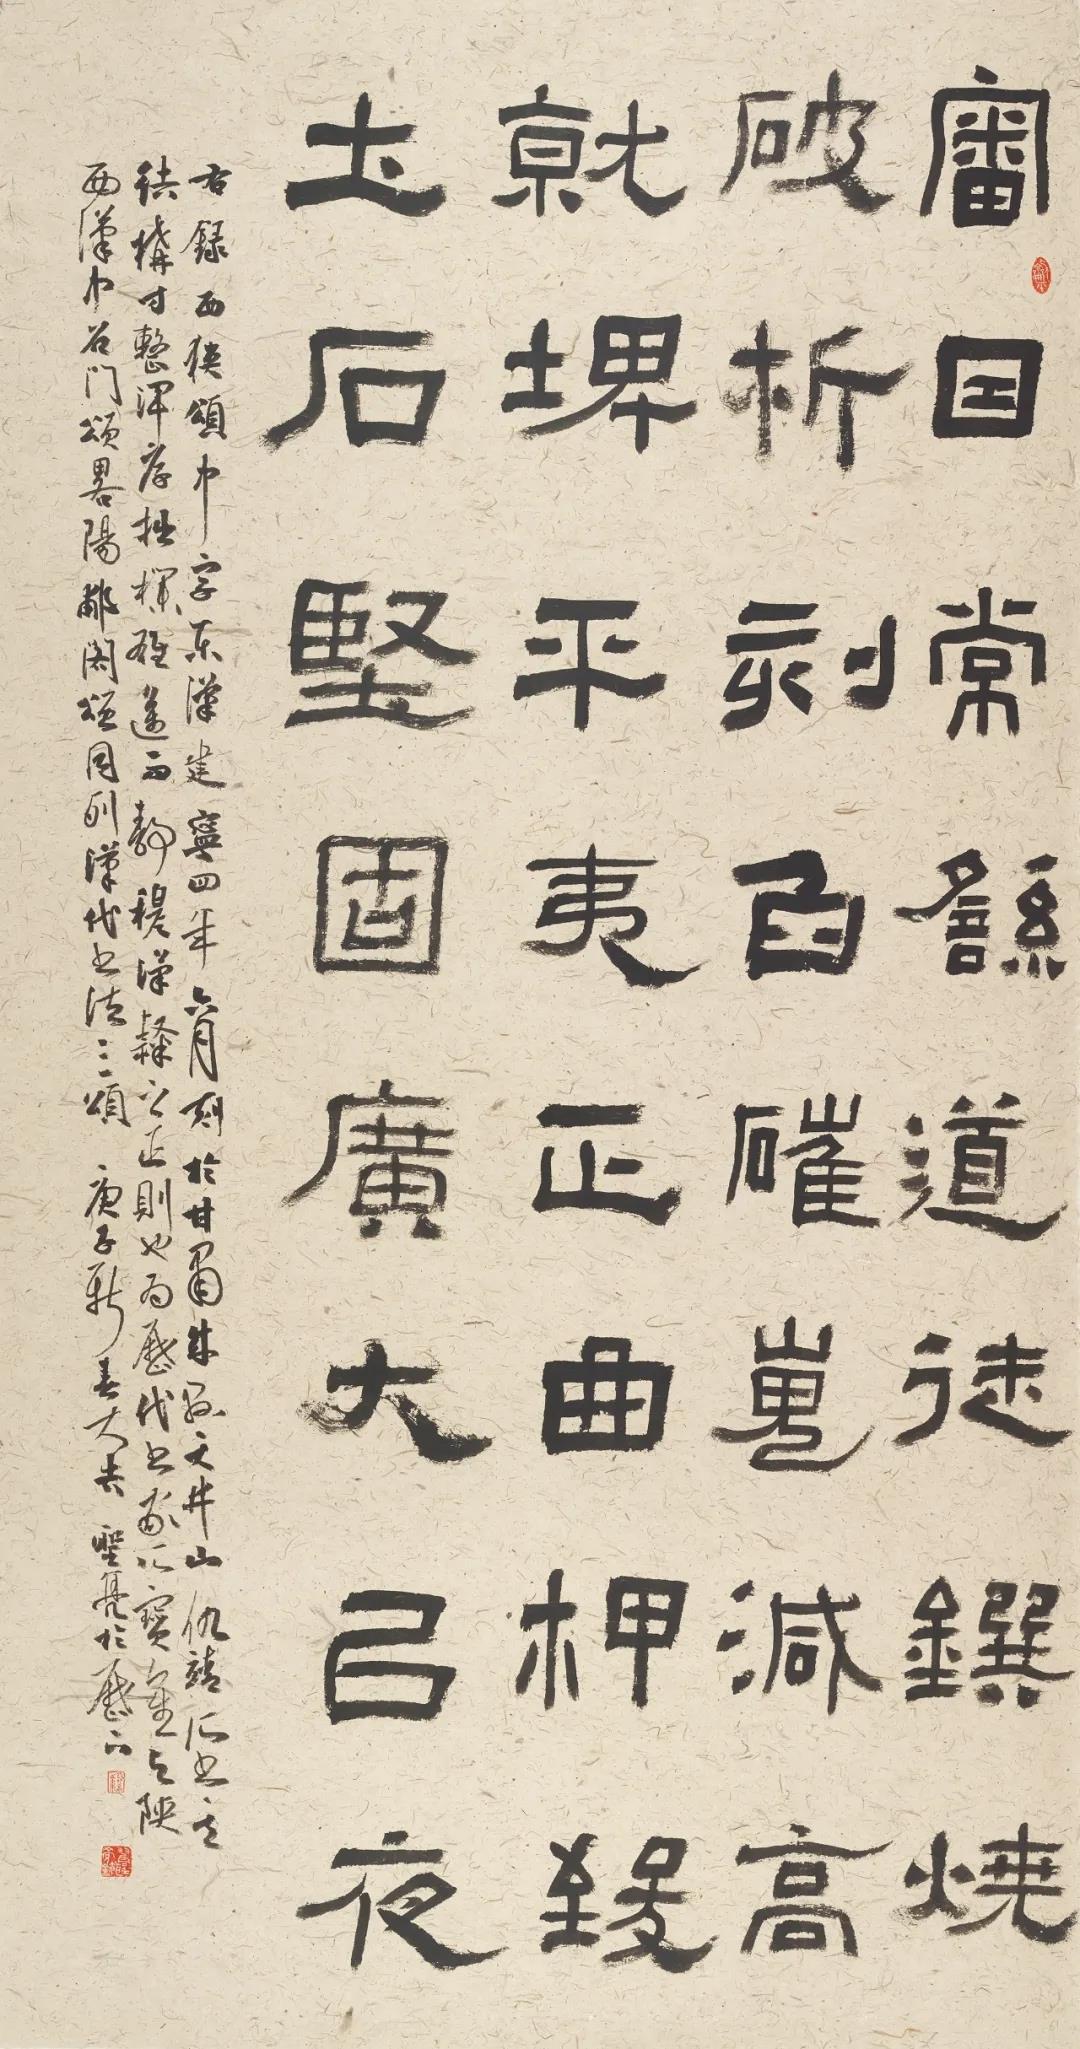 審囙常繇道徒鐉燒
破析刻臽磪嵬減高
就埤平夷正曲柙致
土石堅固廣大己夜
右錄西狹頌中字東漢建寧四年六月刻於甘肅成縣天井山仇靖所書其
結構寸整渾厚拙樸雄逸而靜穆漢隸之正則也為歷代書家所寶重與陝
西漢中石門頌畧陽郙閣頌同列漢代書法三頌 庚子新春大吉聖亮於歷下